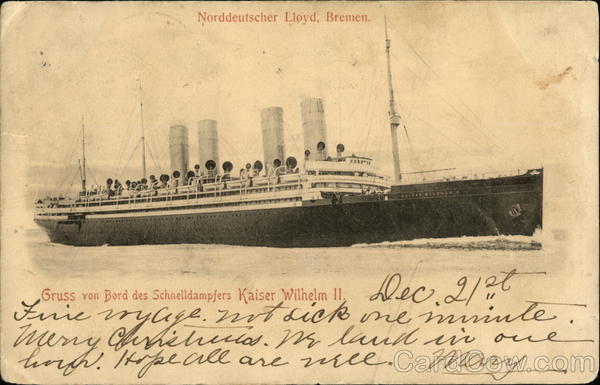 Norddeutscher Lloyd, Bremen.
Gruss von Bord des Schnelldampfers Kaiser Wilhelm II.
Dec. 21st
Fine voyage. not sick one minute.
Merry Christmas. We land in one
hour. Hope all are well.
CardCow.com